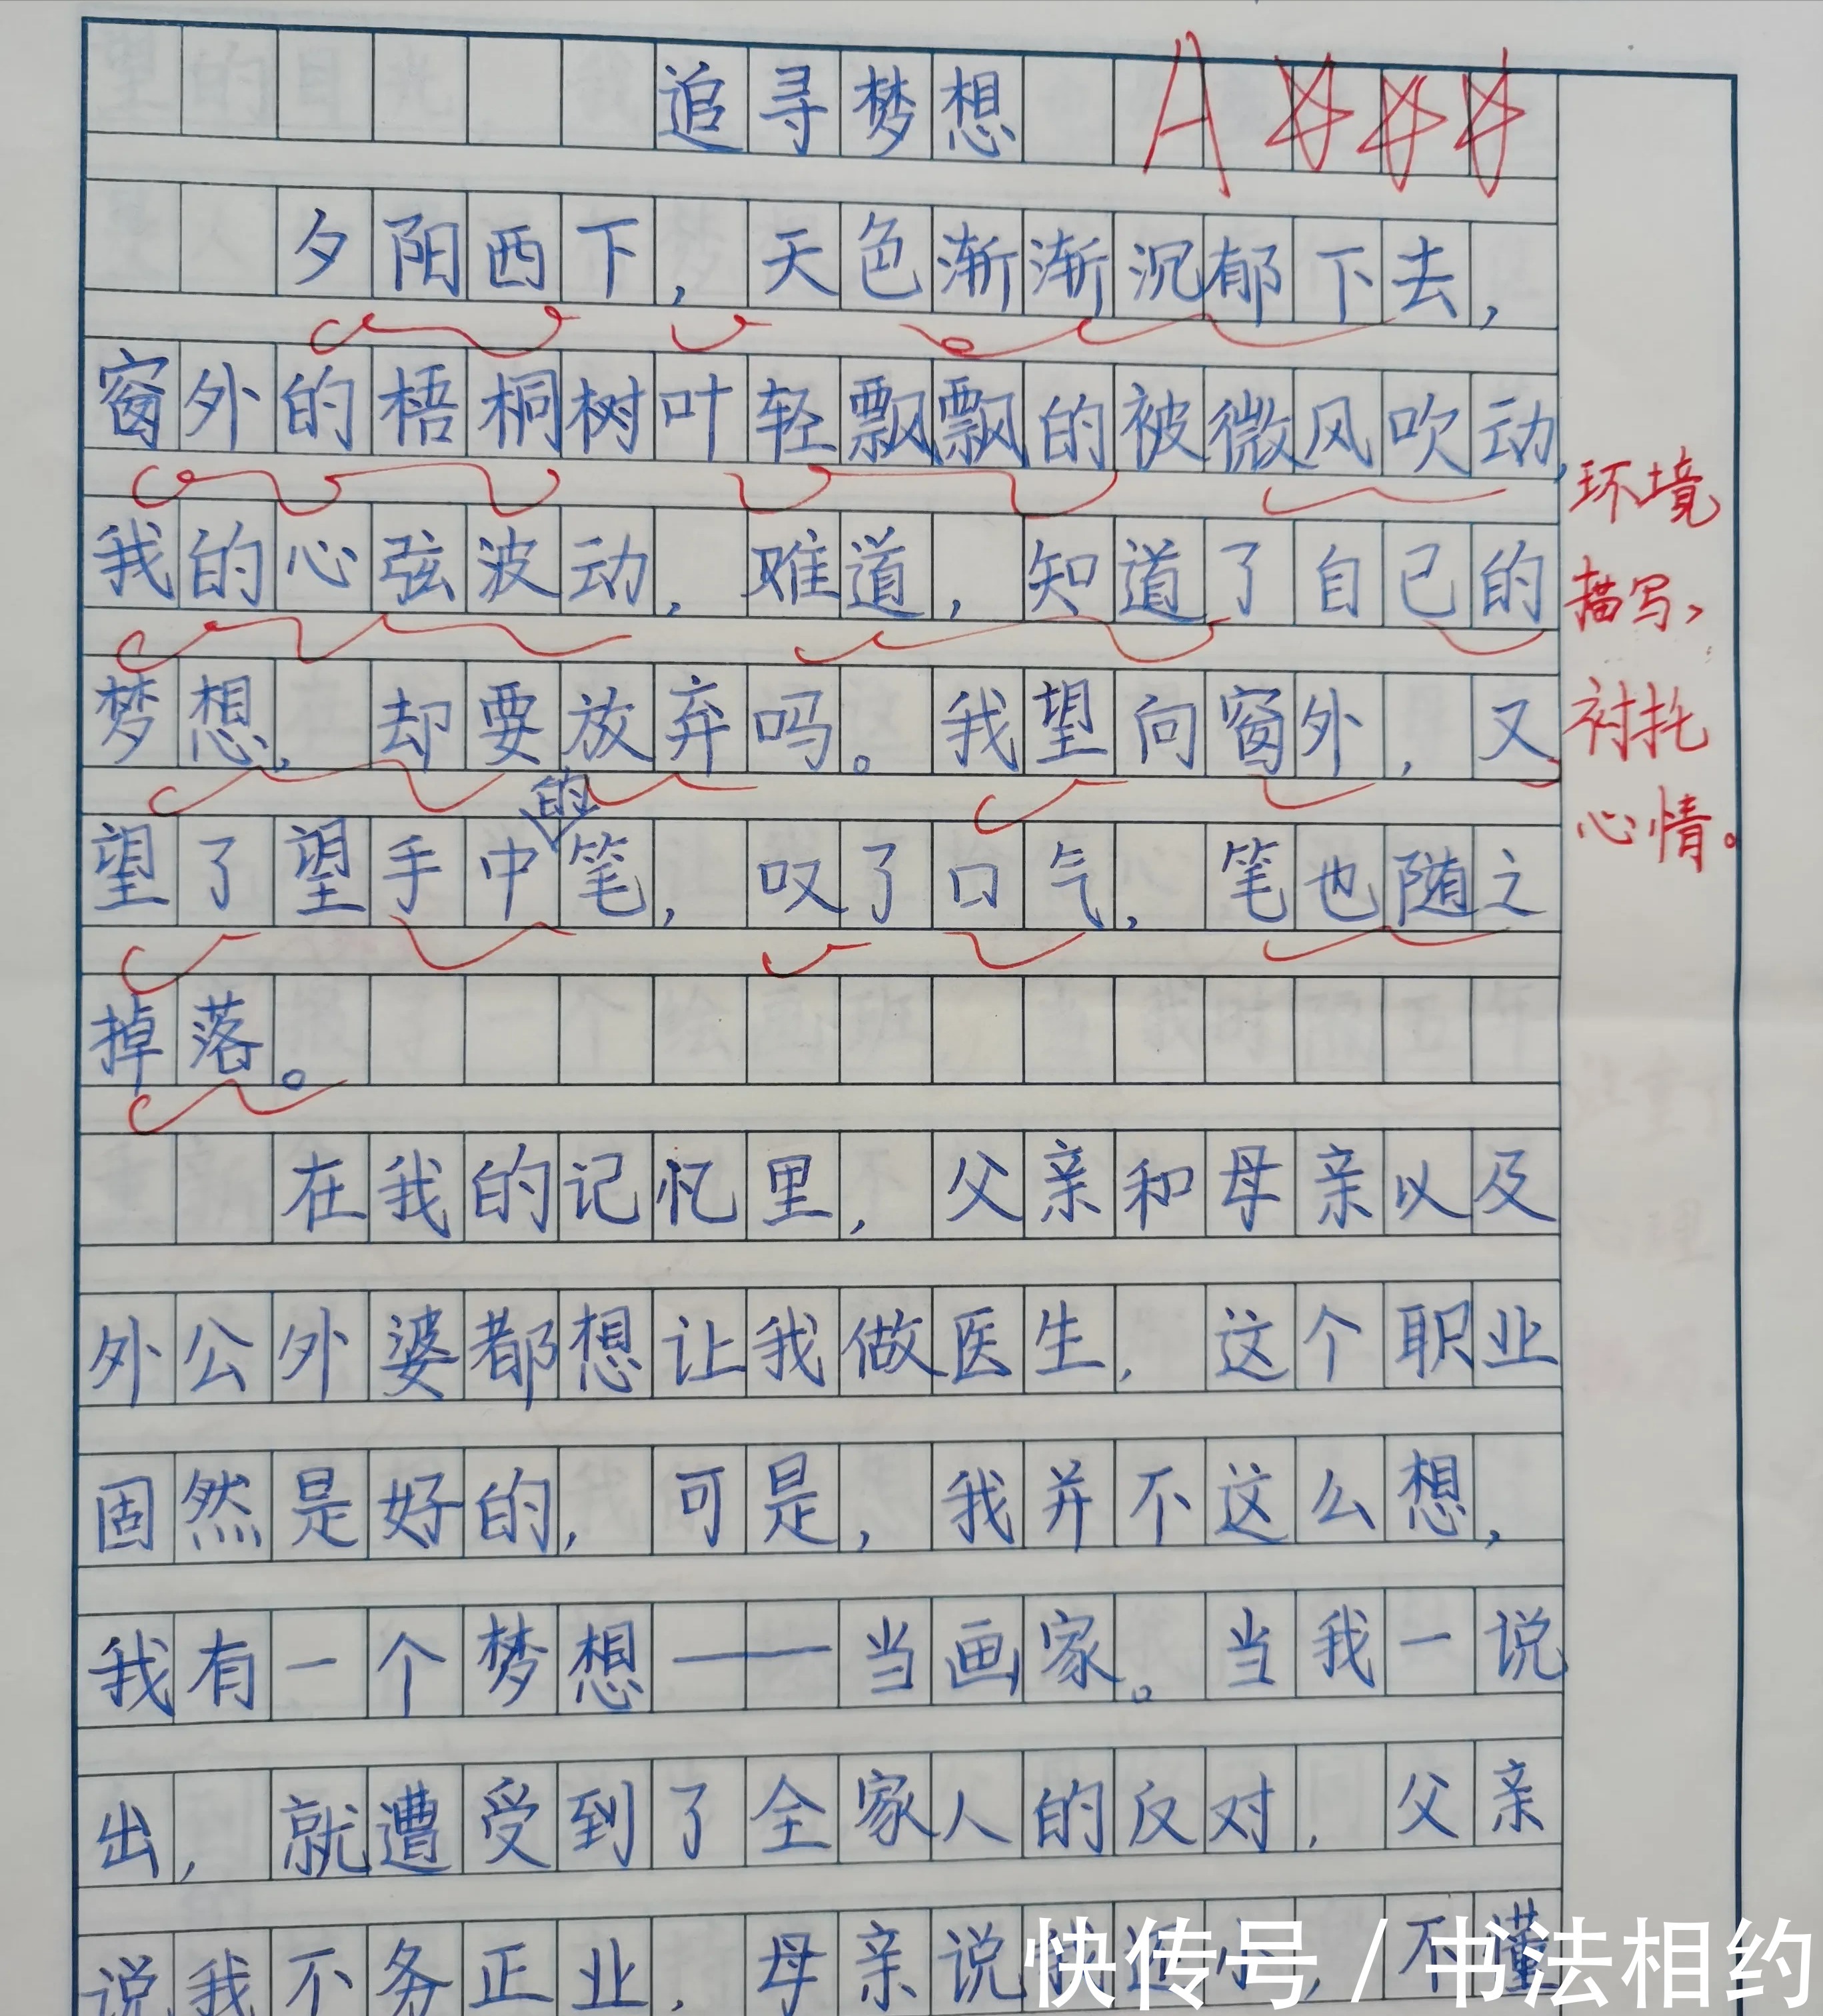 追寻梦想 A☆☆☆
夕阳西下，天色渐渐沉郁下去，
窗外的梧桐树叶轻飘飘的被微风吹动，
我的心弦波动，难道，知道了自己的
梦想，却要放弃吗。我望向窗外，又
望了望手中的笔，叹了口气，笔也随之
掉落。
在我的记忆里，父亲和母亲以及
外公外婆都想让我做医生，这个职业
固然是好的，可是，我并不这么想，
我有一个梦想——当画家。当我一说
出，就遭受到了全家人的反对，父亲
说我不务正业，母亲说我还小，不懂
环境
描写，
衬托
心情。
快传号/书法相约